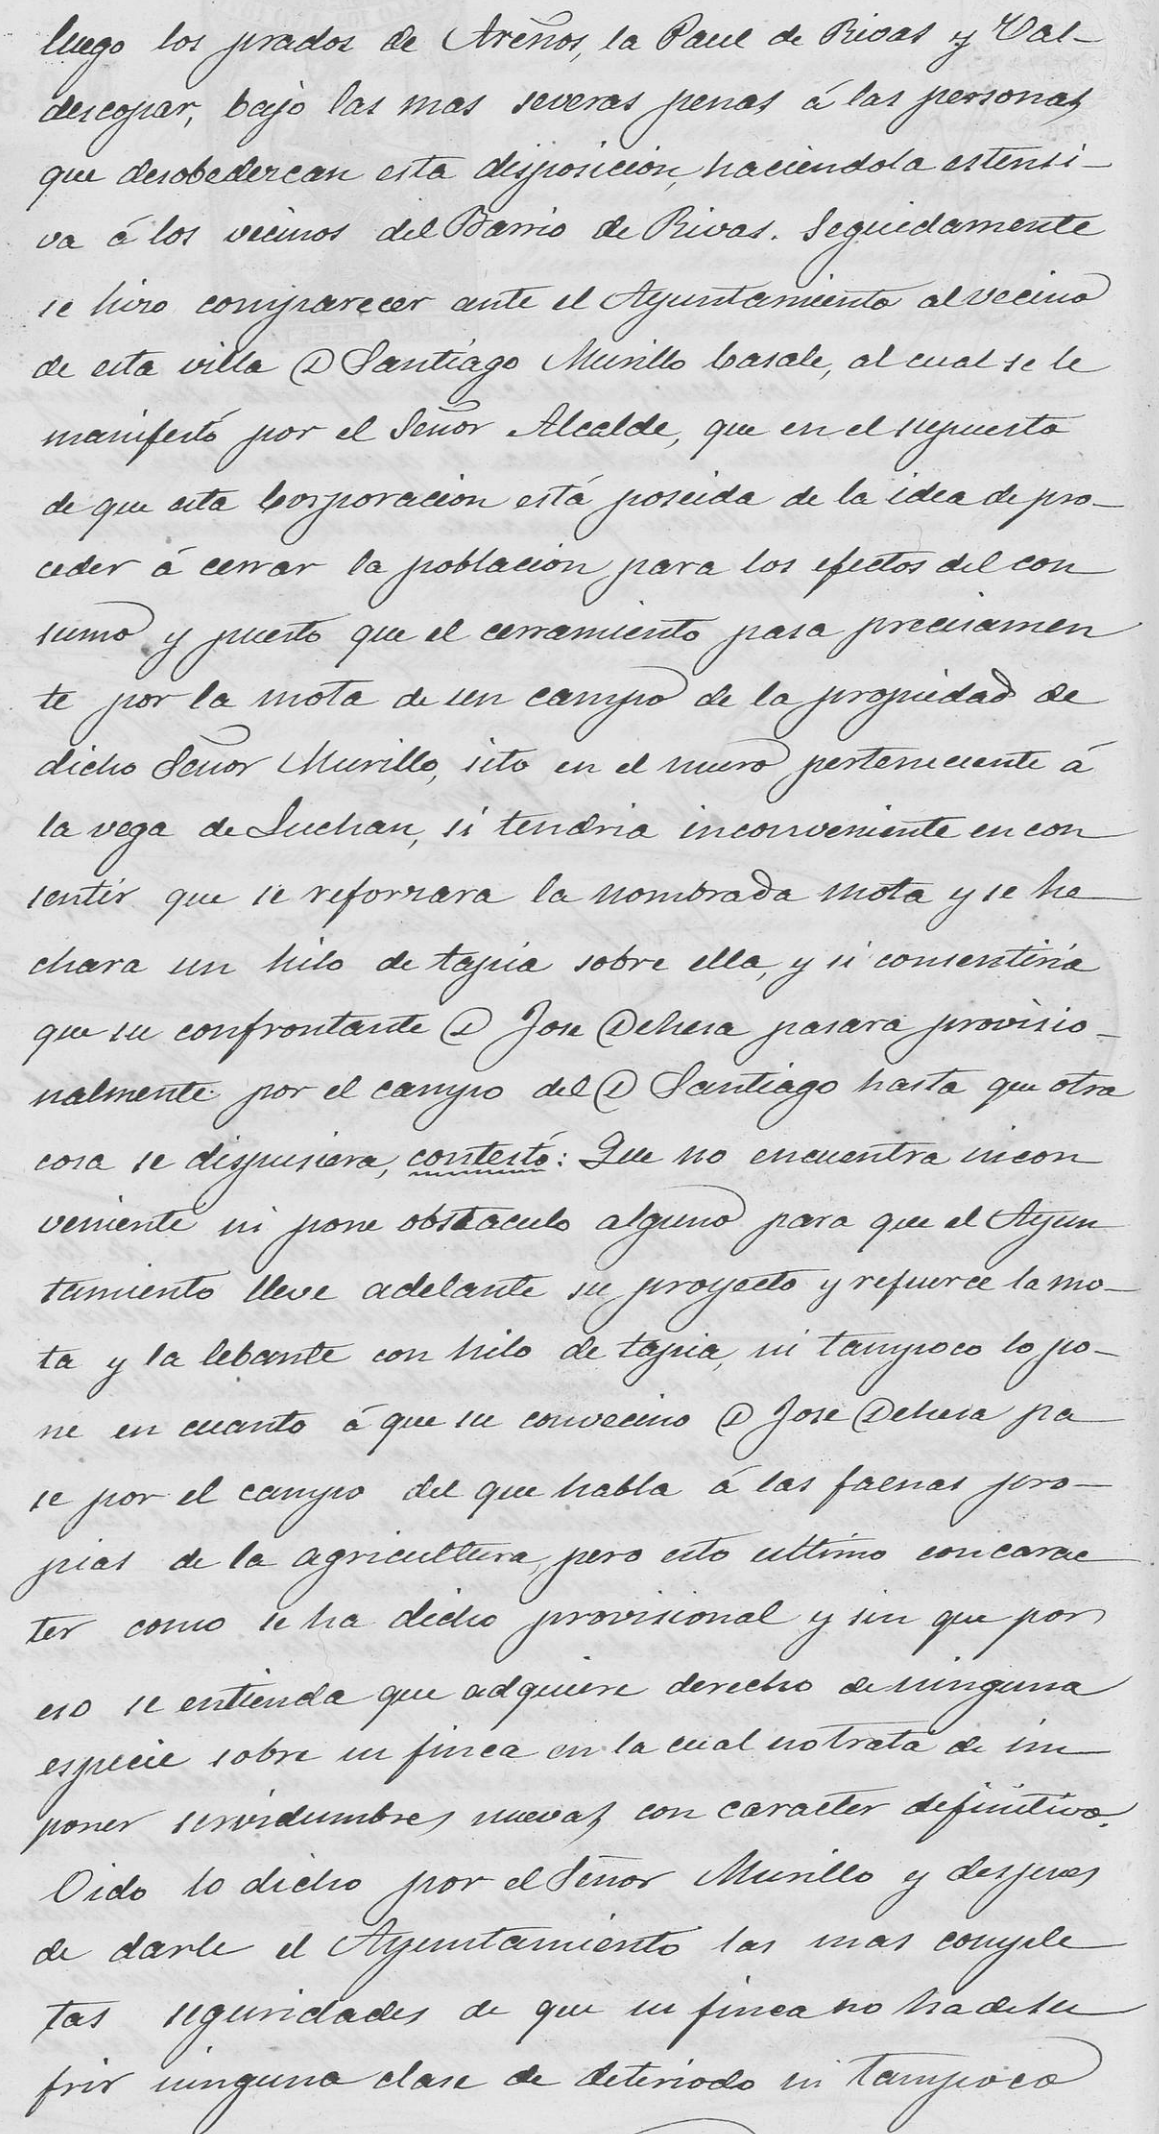 luego los prados de Areños, la Paul de Rivas y Val-
descopar, bajo las mas severas penas á las personas
que desobedezcan esta disposicion, haciendola estensi-
va á los vecinos del Barrio de Rivas. Seguidamente
se hizo comparecer ante el Ayuntamiento al vecino
de esta villa D Santiago Murillo Casale, al cual se le
manifestó por el Señor Alcalde, que en el supuesto
de que esta Corporacion está poseida de la idea de pro-
ceder á cerrar la poblacion para los efectos del con
sumo y puesto que el cerramiento pasa precisamen
te por la mota de un campo de la propiedad de
dicho Señor Murillo, sito en el muro perteneciente á
la vega de Luchan, si tendria inconveniente en con
sentir que se reforzara la nombrada mota y se he
chara un hilo de tapia sobre ella, y si consentiria
que su confrontante D Jose Dehesa pasara provisio-
nalmente por el campo del D Santiago hasta que otra
cosa se dispusiera, contestó: Que no encuentra incon
veniente ni pone obstaculo alguno para que el Ayun
tamiento lleve adelante su proyecto y refuerce la mo-
ta y la lebante con hilo de tapia, ni tampoco lo po-
ne en cuanto á que su convecino D Jose Dehesa pa
se por el campo del que habla á las faenas pro-
pias de la agricultura, pero esto ultimo con carac
ter como se ha dicho provisional y sin que por
eso se entienda que adquiere derecho de ninguna
especie sobre su finca en la cual no trata de im
poner servidumbres nuevas con caracter definitivo.
Oido lo dicho por el Señor Murillo y despues
de darle el Ayuntamiento las mas comple
tas seguridades de que su finca no ha de su
frir ninguna clase de deteriodo ni tampoco